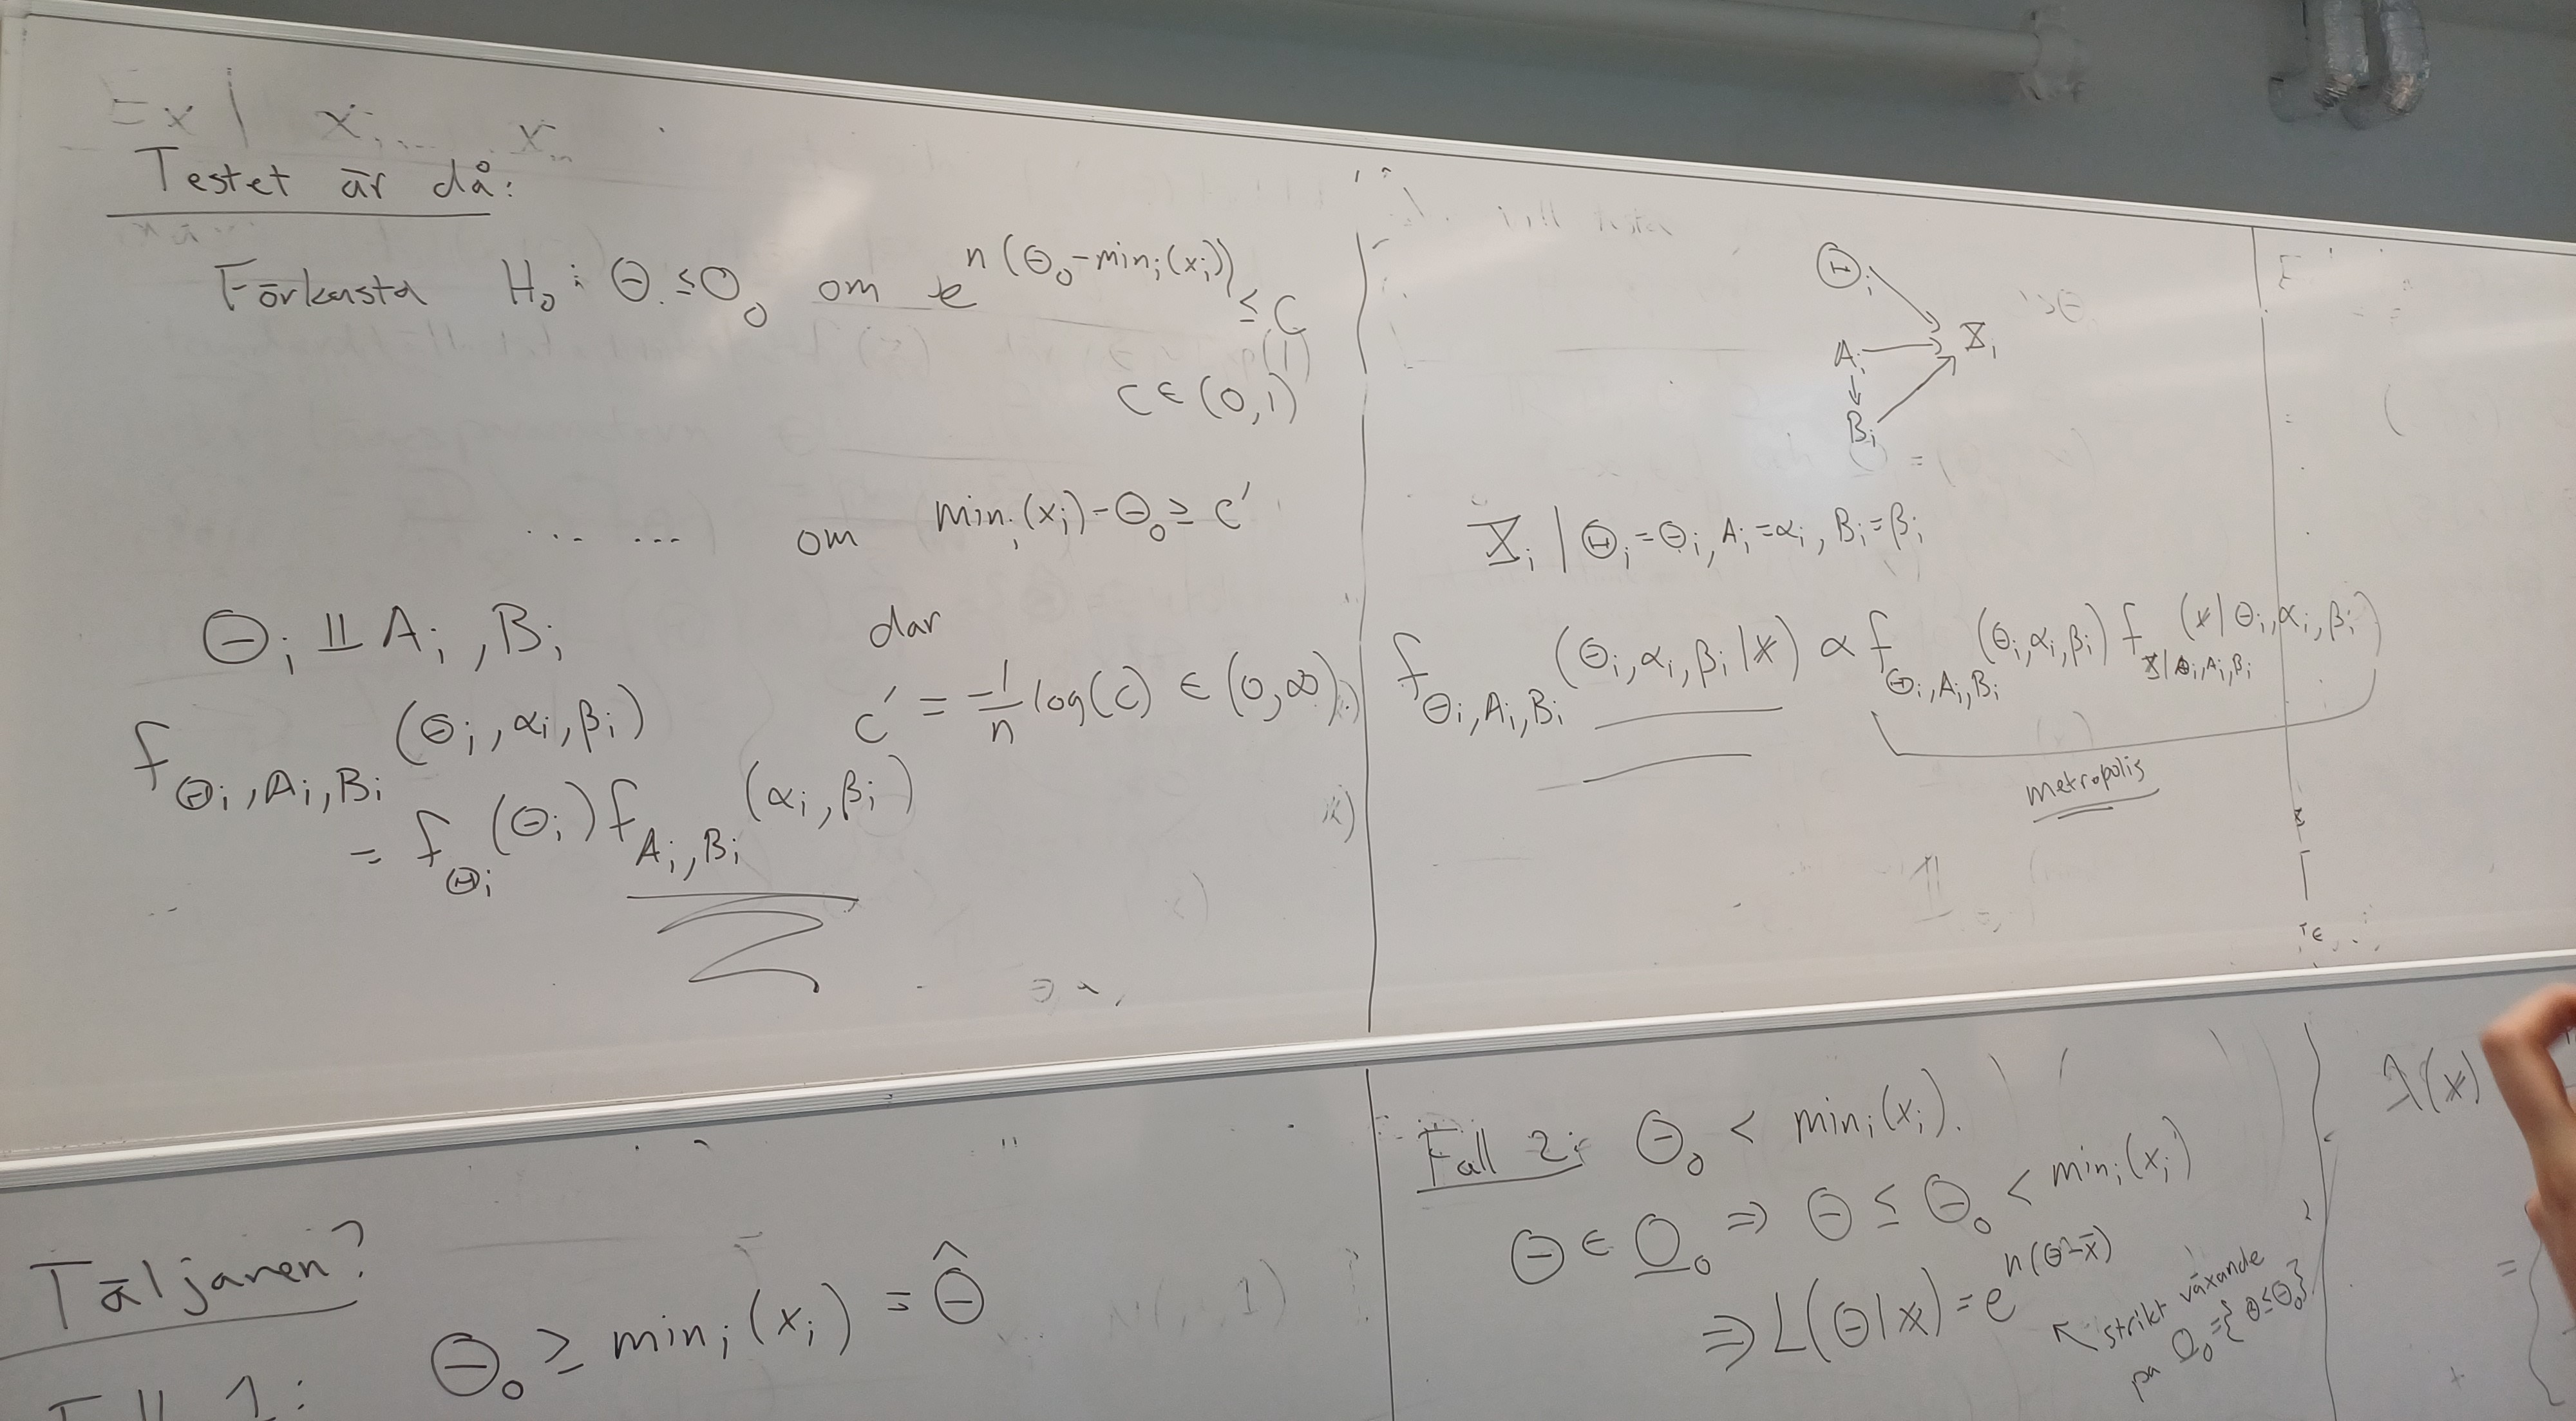 Ex | x₁ ... xₙ
Testet är då:
Förkasta H₀: θ ≤ θ₀ om e^{n(θ₀ - minᵢ(xᵢ))} ≤ C
C ∈ (0,1)
... ... om minᵢ(xᵢ) - θ₀ ≥ c'
där
c' = -1/n log(c) ∈ (0,∞)
Θᵢ ⫫ Aᵢ, Bᵢ
f_{Θᵢ,Aᵢ,Bᵢ}(θᵢ, αᵢ, βᵢ)
= f_{Θᵢ}(θᵢ) f_{Aᵢ,Bᵢ}(αᵢ, βᵢ)
Θᵢ
Aᵢ → Xᵢ
↓
Bᵢ
Xᵢ | Θᵢ = θᵢ, Aᵢ = αᵢ, Bᵢ = βᵢ
f_{Θᵢ,Aᵢ,Bᵢ}(θᵢ, αᵢ, βᵢ | x) ∝ f_{Θᵢ,Aᵢ,Bᵢ}(θᵢ, αᵢ, βᵢ) f_{X|Θᵢ,Aᵢ,Bᵢ}(x | θᵢ, αᵢ, βᵢ)
metropolis
Täljaren?
θ₀ ≥ minᵢ(xᵢ) = θ̂
Fall 1:
Fall 2: θ₀ < minᵢ(xᵢ).
θ ∈ Θ₀ ⇒ θ ≤ θ₀ < minᵢ(xᵢ)
⇒ L(θ|x) = e^{n(θ-x̄)}
↖ strikt växande
på Θ₀ = {θ ≤ θ₀}
λ(x)
= {